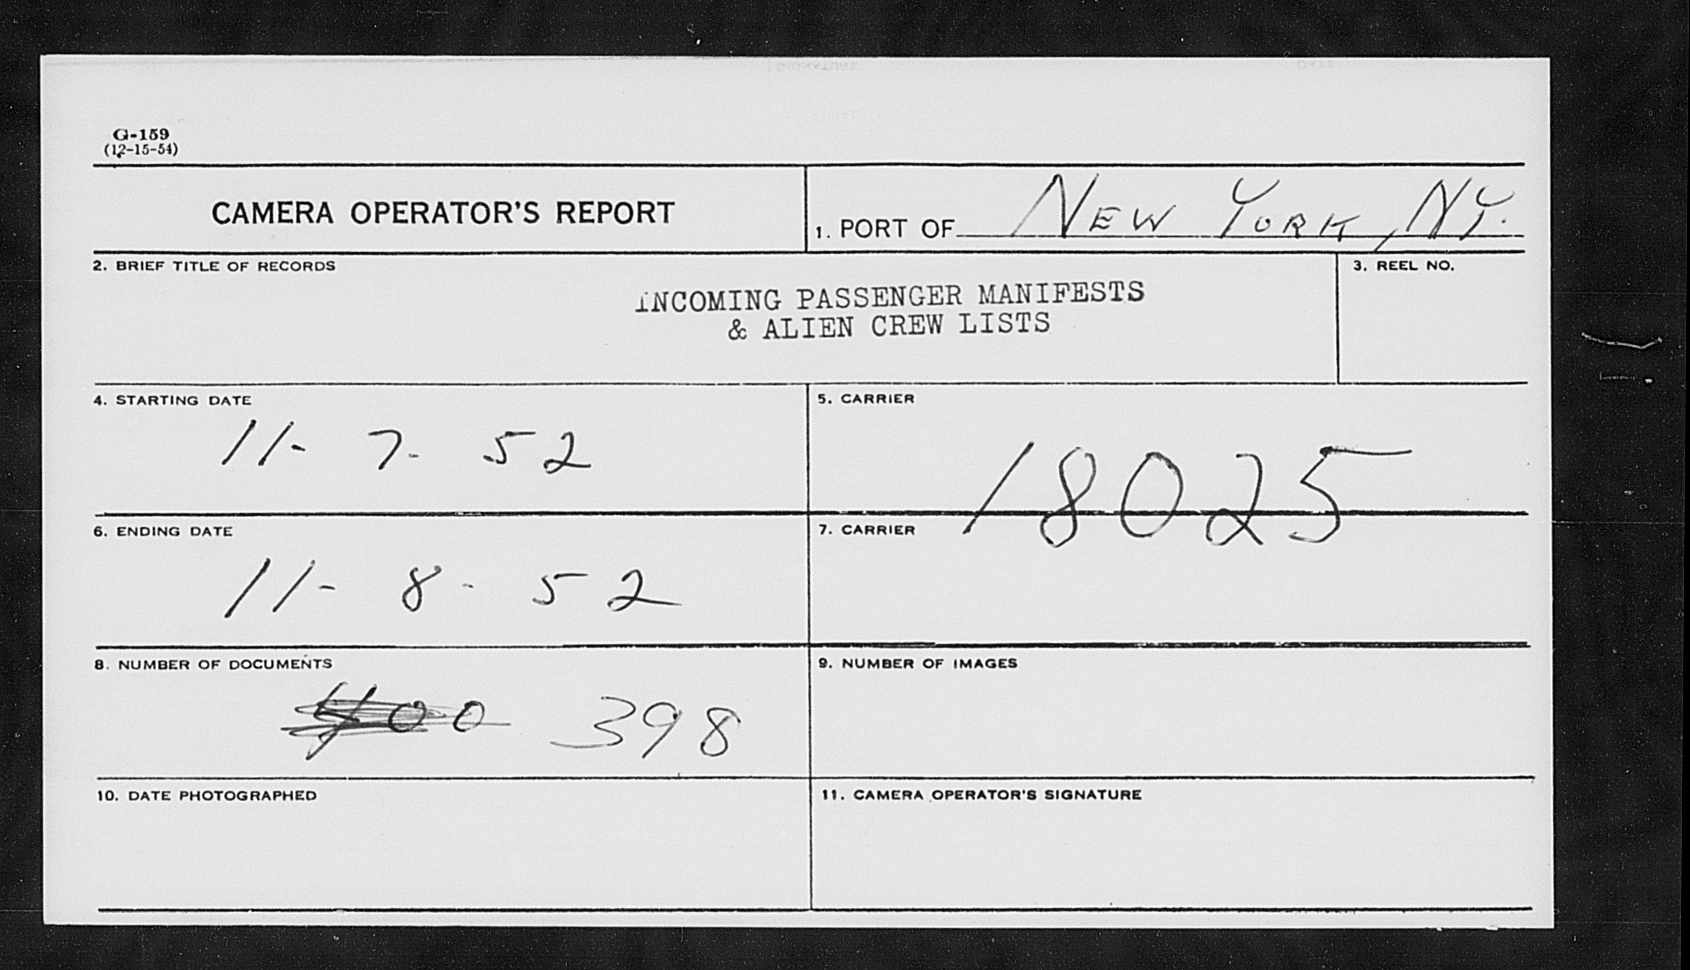 G-159
(12-15-54)
CAMERA OPERATOR'S REPORT
1. PORT OF NEW YORK, NY.
2. BRIEF TITLE OF RECORDS
INCOMING PASSENGER MANIFESTS
& ALIEN CREW LISTS
3. REEL NO.
4. STARTING DATE
11-7-52
5. CARRIER
18025
6. ENDING DATE
11-8-52
7. CARRIER
8. NUMBER OF DOCUMENTS
400 398
9. NUMBER OF IMAGES
10. DATE PHOTOGRAPHED
11. CAMERA OPERATOR'S SIGNATURE